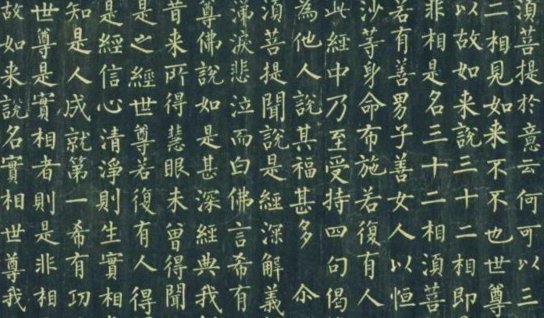 須菩提於意云何可以三
二相見如来不不也世尊
以故如来說三十二相即
非相是名三十二相須菩
若有善男子善女人以恒
沙等身命布施若復有人
此經中乃至受持四句偈
為他人說其福甚多 尒
須菩提聞說是經深解義
涕淚悲泣而白佛言希有
尊佛說如是甚深經典我
昔来所得慧眼未曾得聞
是之經世尊若復有人得
是經信心清淨則生實相
知是人成就第一希有功
世尊是實相者則是非相
故如来說名實相世尊我